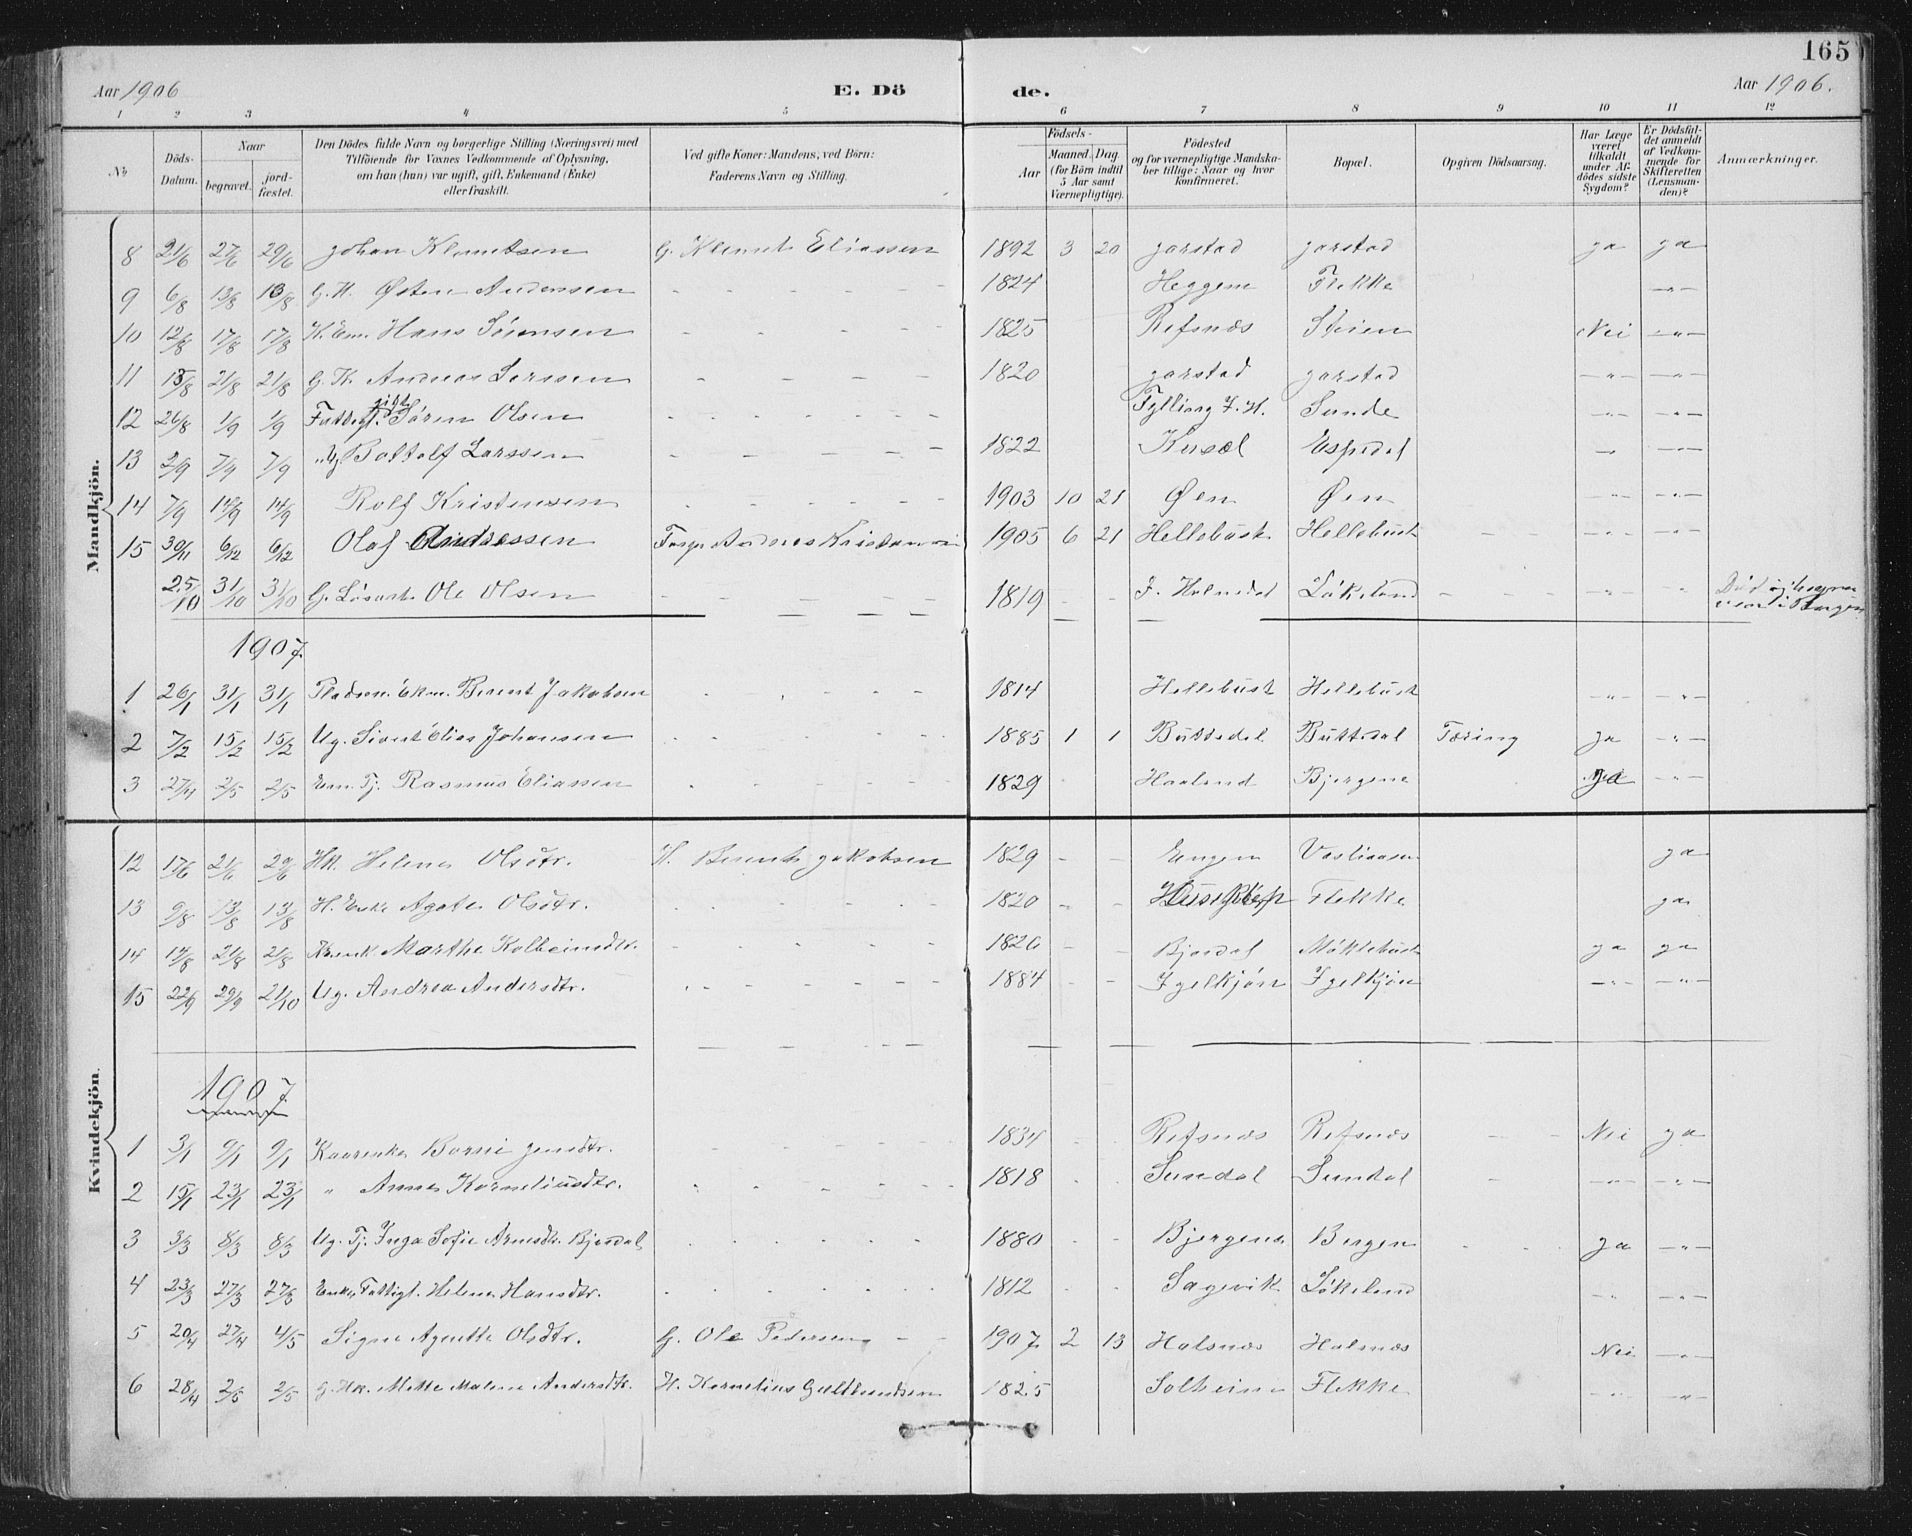 165
Aar 1906 E. Dö de. Aar 1906.
1 2 3 4 5 6 7 8 9 10 11 12
No Döds-Datum. Naar begravet. jordfæstet. Den Dödes fulde Navn og borgerlige Stilling (Næringsvei) med Tilföiende for Voxnes Vedkommende af Oplysning, om han (hun) var ugift, gift, Enkemand (Enke) eller fraskilt. Ved gifte Koner: Mandens; ved Börn: Faderens Navn og Stilling. Födsels- Aar Maaned. Dag (for Börn indtil 5 Aar samt Værnepligtige). Födested og for værnepligtige Mandskaber tillige: Naar og hvor konfirmeret. Bopæl. Opgiven Dödsaarsag. Har Læge været tilkaldt under Afdödes sidste Sygdom? Er Dödsfaldet anmeldt af Vedkommende for Skifteretten (Lensmanden)? Anmærkninger.
Mandkjön.
8 21/6 27/6 29/6 Johan Klemetsen G. Klemet Eliassen 1892 3 20 Jarstad Jarstad ja ja
9 6/8 13/8 13/8 G. K. Østen Andersen 1824 Heggene Flekke -"-
10 12/8 17/8 17/8 K. Em. Hans Sørensen 1825 Refsnæs Steien Nei -"-
11 13/8 21/8 21/8 G. K. Andreas Larssen 1820 Jarstad Jarstad -"- -"-
12 26/8 1/9 1/9 Fattigl. gift Søren Olsen Tylling Y. H. Sande -"- -"-
13 2/9 7/9 7/9 "Ug Bottolf Larssen 1822 Espedal -"- -"-
14 7/9 14/9 14/9 Rolf Kristensen 1903 10 21 Øen Øen -"- -"-
15 30/11 6/12 6/12 Olaf Andreassen Andreas 1905 6 21 Hellebust Hellebust -"- -"-
25/10 31/10 31/10 G. Løsarb. Ole Olsen 1819 Y. Holmedal Løkeland -"- " Død og begravet i Bergen
1907.
1 26/1 31/1 31/1 Pladsm. Ekm. Berent Jakobsen 1814 Hellebust Hellebust -"- -"-
2 7/2 15/2 15/2 Ug. Sivert Elias Johansen 1885 1 1 Buttedal Buttedal Tæring ja -"-
3 27/4 2/5 2/5 Em. Tj. Rasmus Eliassen 1829 Haaland Bjergene ja -"-
Kvindekjön.
12 17/6 21/6 29/6 HK. Helene Olsdtr. H. Berent Jakobsen 1829 Engen ja
13 9/8 13/8 13/8 H. Enke Agate Olsdtr. 1820 Flekke ja
14 14/8 21/8 21/8 Marthe Kolbeinsdtr. 1826 Bjordal Møklebust ja ja
15 22/9 29/9 21/10 Ug. Andrea Andersdtr. 1884 Igelkjøn Igelkjøn -"- -"-
1907.
1 3/1 9/1 9/1 Kaarenke Jensdtr. 1834 Refsnæs Refsnæs Nei ja
2 15/1 23/1 23/1 " Anne Korneliusdtr. 1818 Sundal Sundal -"- -"-
3 3/3 8/3 8/3 Ug. Tj. Inga Sofie Arnesdtr. Bjordal 1880 Bjergene Bergen ja -"-
4 23/3 27/3 27/3 Enke, Fattigl. Helene Hansdtr. 1812 Sagevik Løkeland -"- -"-
5 20/4 27/4 4/5 Signe Agnette Olsdtr. G. Ole Pedersen 1907 2 13 Halsnæs Halsnæs Nei -"-
6 28/4 2/5 2/5 G. Hk. Mette Malene Andersdtr. H. Kornelius Guldbrandsen 1825 Solheim Flekke -"- -"-